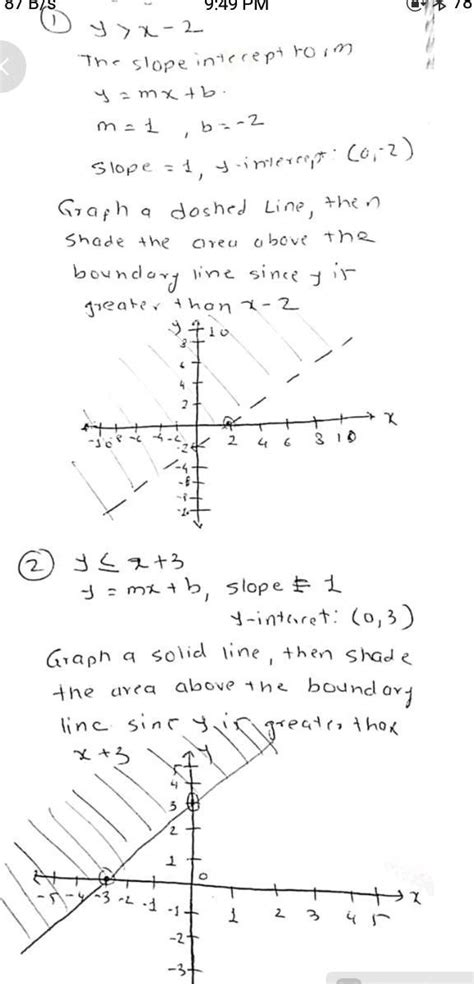 87 B/s 9:49 PM 78
① y > x - 2
The slope intercept form
y = mx + b.
m = 1 , b = -2
Slope = 1, y-intercept: (0,-2)
Graph a dashed Line, then
shade the area above the
boundary line since y is
greater than x - 2
y 10
8
6
4
2
-10 -8 -6 -4 -2 2 4 6 8 10 x
-2
-4
-6
-8
-10
② y ≤ x + 3
y = mx + b, slope = 1
y-interet: (0,3)
Graph a solid line, then shade
the area above the boundary
line sinc y is greater than
x + 3
y
5
4
3
2
1
0
-5 -4 -3 -2 -1 1 2 3 4 5 x
-1
-2
-3